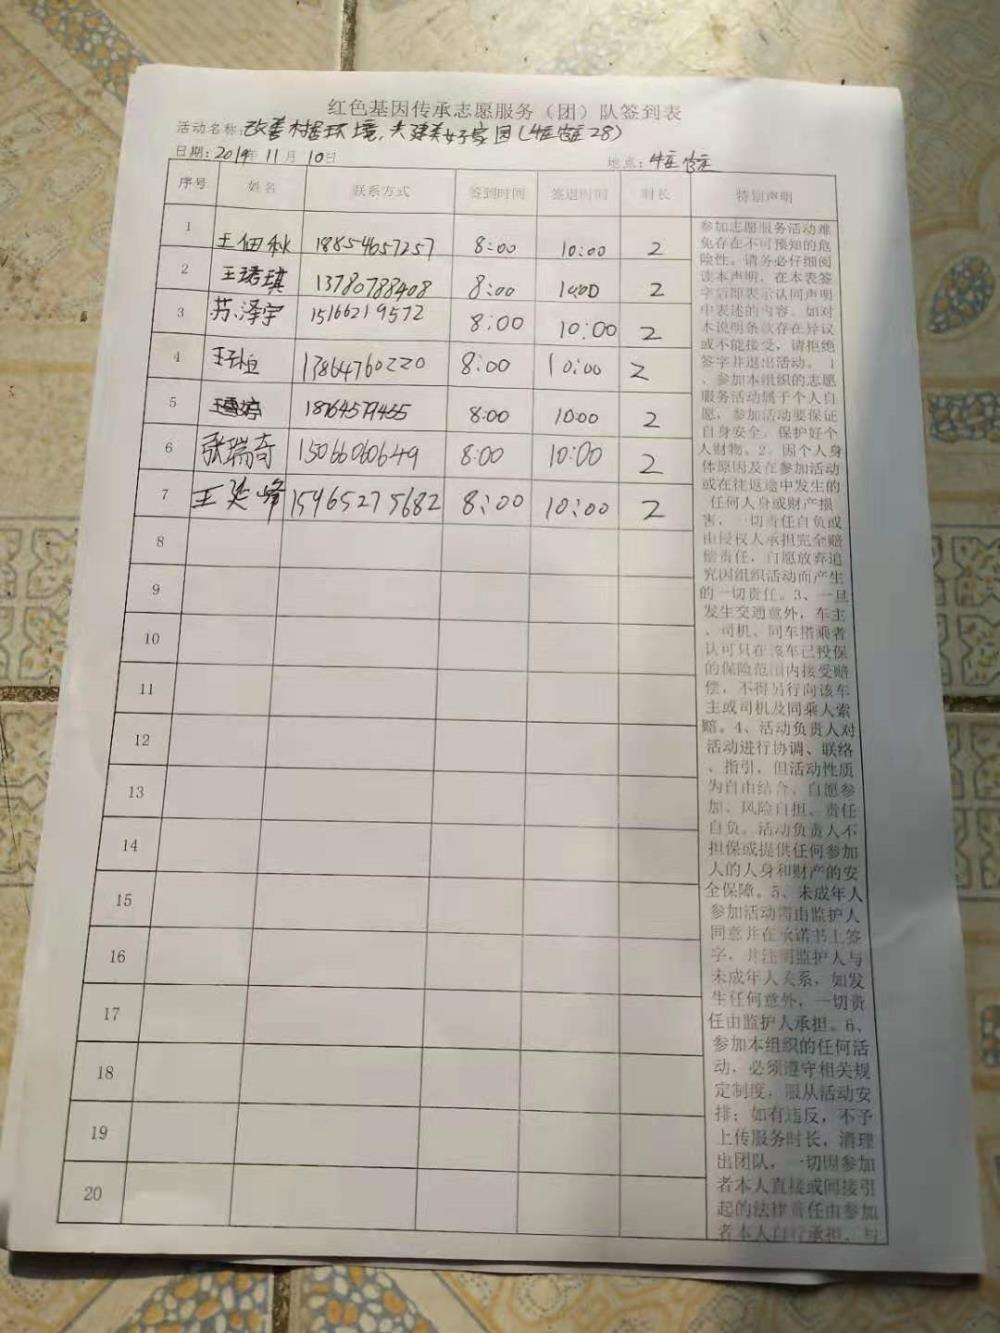 红色基因传承志愿服务（团）队签到表
活动名称:改善村居环境,共建美好家园(牛庄28)
日期:2019年11月10日 地点:牛庄
序号 姓名 联系方式 签到时间 签退时间 时长 特别声明
1 王佃秋 18854657257 8:00 10:00 2
2 王珺琪 13780788408 8:00 10:00 2
3 苏泽宇 15166219572 8:00 10:00 2
4 13864760220 8:00 10:00 2
5 18764579455 8:00 10:00 2
6 张瑞奇 15066060649 8:00 10:00 2
7 王延峰 15965275682 8:00 10:00 2
8
9
10
11
12
13
14
15
16
17
18
19
20
参加志愿服务活动难
免存在不可预知的危
险性。请务必仔细阅
读本声明，在本表签
字后即表示认同声明
中表述的内容。如对
本说明条款存在异议
或不能接受，请拒绝
签字并退出活动。1
、参加本组织的志愿
服务活动属于个人自
愿，参加活动要保证
自身安全，保护好个
人财物。2、因个人身
体原因及在参加活动
或在往返途中发生的
任何人身或财产损
害，一切责任自负或
由侵权人承担完全赔
偿责任，自愿放弃追
究因组织活动而产生
的一切责任。3、一旦
发生交通意外，车主
、司机、同车搭乘者
认可只在该车已投保
的保险范围内接受赔
偿，不得另行向该车
主或司机及同乘人索
赔。4、活动负责人对
活动进行协调、联络
、指引，但活动性质
为自由结合、自愿参
加、风险自担、责任
自负。活动负责人不
担保或提供任何参加
人的人身和财产的安
全保障。5、未成年人
参加活动需由监护人
同意并在承诺书上签
字，并注明监护人与
未成年人关系，如发
生任何意外，一切责
任由监护人承担。6、
参加本组织的任何活
动，必须遵守相关规
定制度，服从活动安
排；如有违反，不予
上传服务时长，清理
出团队，一切因参加
者本人直接或间接引
起的法律责任由参加
者本人自行承担，与